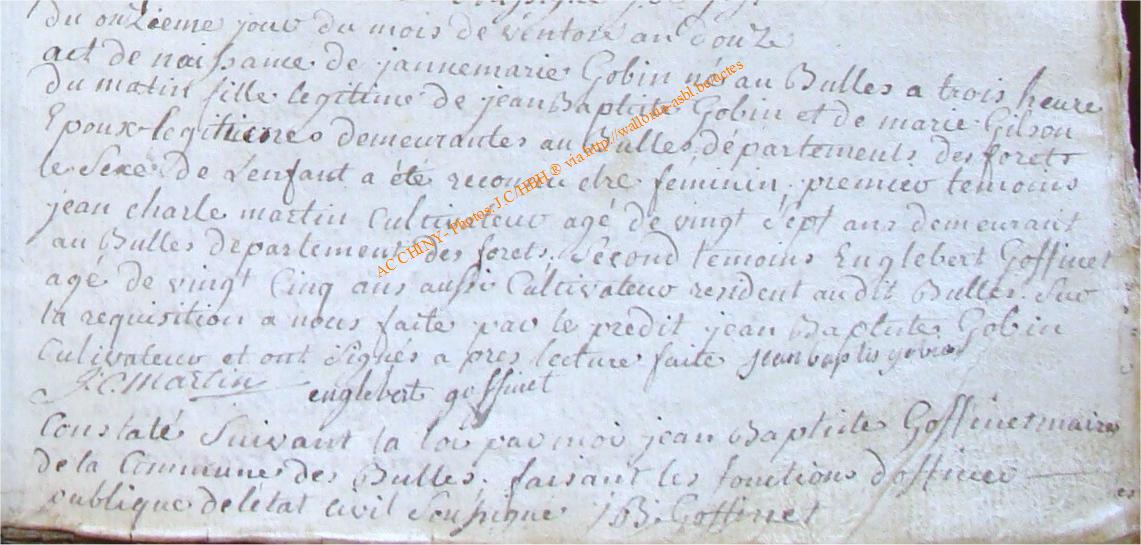 du onzieme jour du mois de ventose an douze
act de naissance de jannemarie Gobin née au Bulles a trois heure
du matin fille legitime de jean Baptiste Gobin et de marie Gilson
Epoux legitiemes demeurantes au Bulles départements des forets
le Sexe de L'enfant a été reconnu etre feminin. premier temoins
jean charle martin Cultivateur agé de vingt sept ans demeurant
au Bulles departement des forets. Second temoins Englebert Goffinet
agé de vingt Cinq ans aussi Cultivateur resident audit Bulles. Sur
la requisition a nous faite par le predit jean Baptiste Gobin
Cultivateur et ont Signés a pres lecture faite jean baptis gobin
J:C: martin englebert goffinet
Constaté Suivant la loi par moi jean Baptiste Goffinet maire
de la Commune des Bulles. faisant les fonctions d'officier
publique de l'état Civil Sousigné J:B: Goffinet
AC CHINY - Photos: J.C/HBH ® via http://wallonia-asbl.be/actes